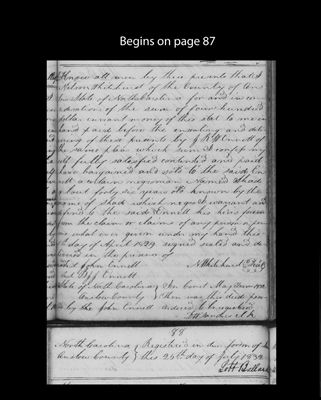 Begins on page 87
Know all men by these presents that I
Nelson Whitehurst of the County of On
State of North Carolina for and in con
sideration of the sum of four hundred
dollars current money of this state to me in
hand paid before the ensealing and deli
of these presents by J R Ennett of
the same place which sum I confess my
self fully satisfied contented and paid
have bargained and sold to the said En
a certain negro man named Shade
about forty six years old known by the
name of Shade which negro I warrant and
to the said Ennett his heirs forever
from the claim or claims of any person
what ever given under my hand this
day of April 1829 signed sealed and de
in the presence of
John Ennett
Ennett
State of North Carolina In Court May term
Onslow County Then was this deed
by the John Ennett ordered to be registered
88
North Carolina Registered in due form of
Onslow County this 24th day of July 1832